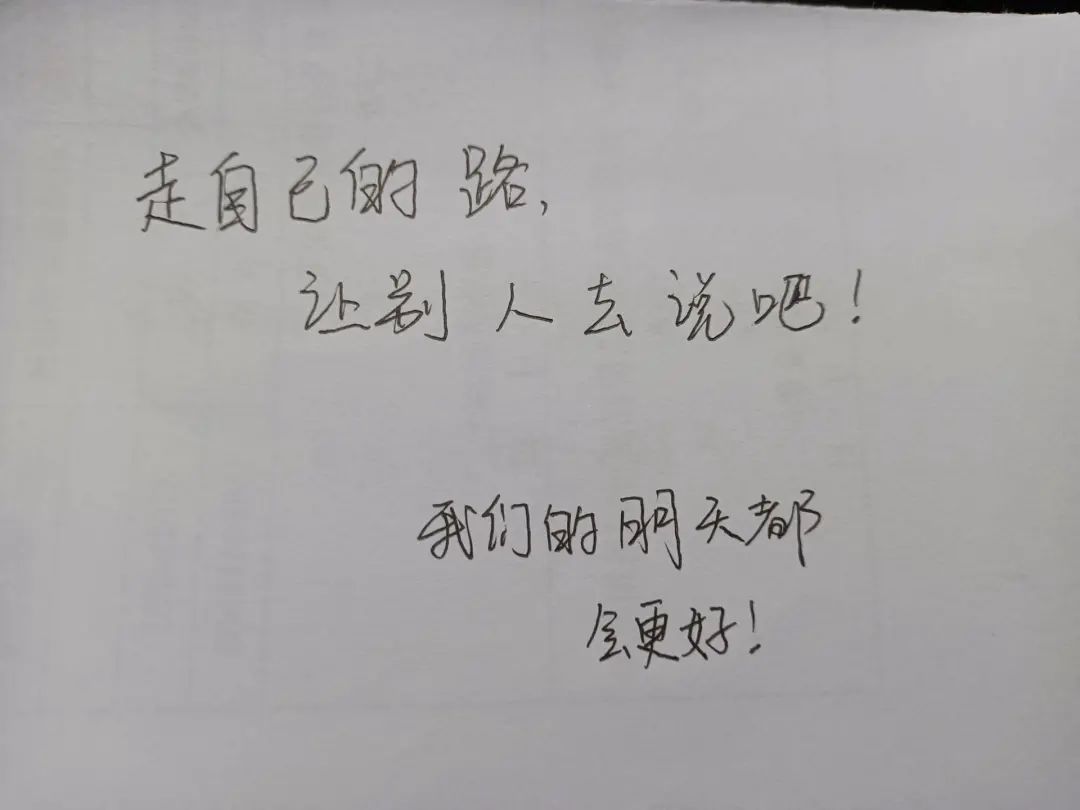 走自己的路,
让别人去说吧!
我们的明天都
会更好!